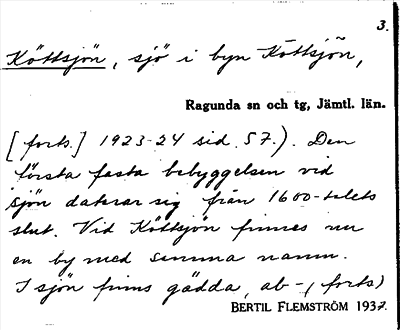 3.
Köttsjön, sjö i byn Köttsjön,
Ragunda sn och tg, Jämtl. län.
[forts.] 1923-24 sid. 57.). Den
första fasta bebyggelsen vid
sjön daterar sig från 1600-talets
slut. Vid Köttsjön finnes nu
en by med samma namn.
I sjön finns gädda, ab- (forts)
BERTIL FLEMSTRÖM 1937.